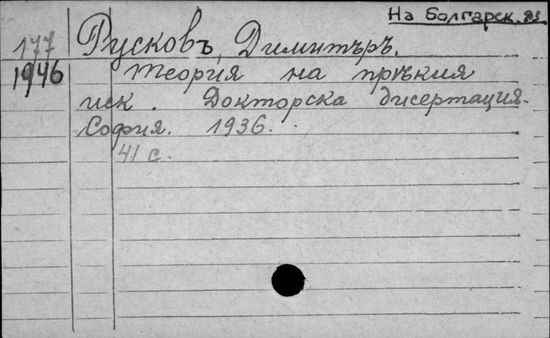 На Болгарск. яз
177
1946
Русковъ, Димитъръ.
Теория на прѣкия
иск. Докторска дисертация.
София. 1936.
41 с.